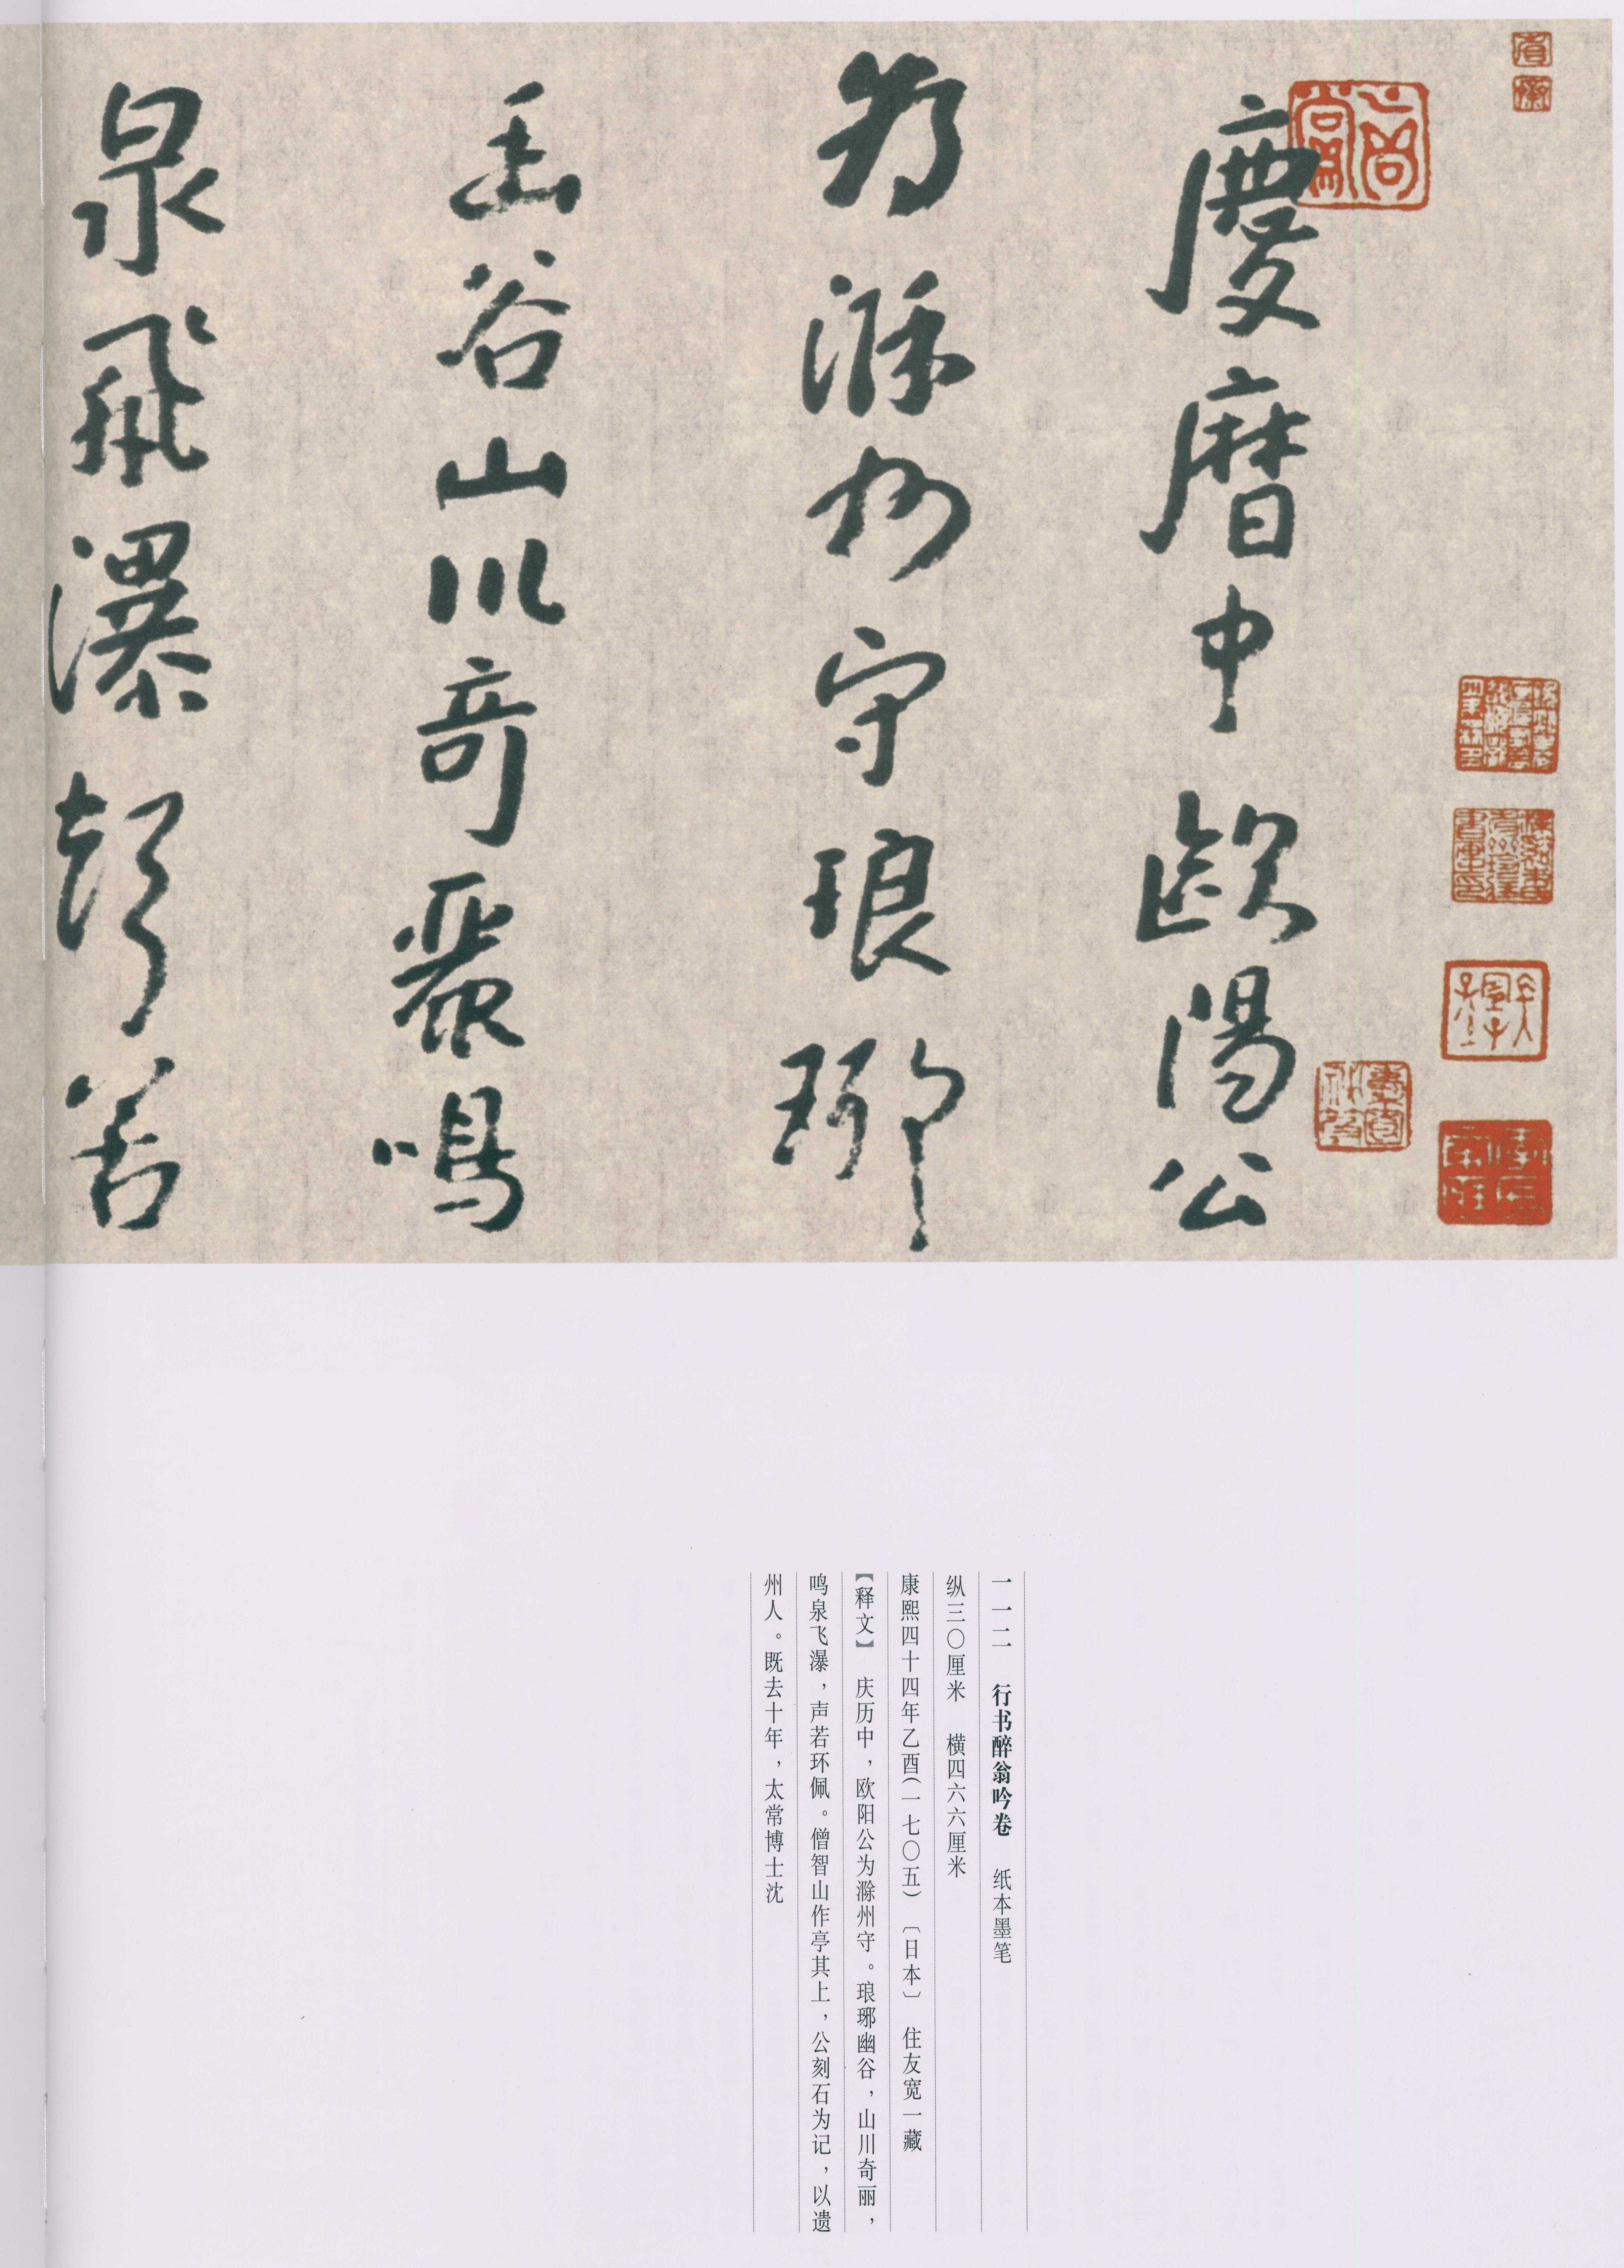 慶曆中歐陽公
為滁州守琅琊
幽谷山川奇麗鳴
泉飛瀑聲若
一一二　行书醉翁吟卷　纸本墨笔
纵三〇厘米　横四六六厘米
康熙四十四年乙酉（一七〇五）〔日本〕　住友宽一藏
【释文】　庆历中，欧阳公为滁州守。琅琊幽谷，山川奇丽，
鸣泉飞瀑，声若环佩。僧智山作亭其上，公刻石为记，以遗
州人。既去十年，太常博士沈